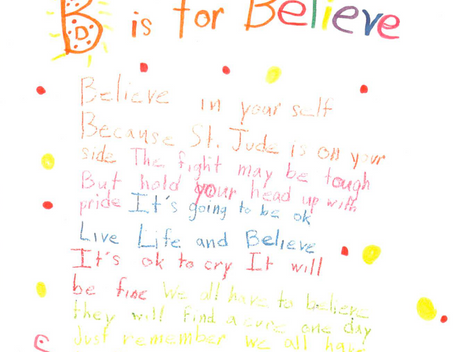 B is for Believe
Believe in your self
Because St. Jude is on your
side The fight may be tough
But hold your head up with
pride It's going to be ok
Live Life and Believe
It's ok to cry It will
be fine We all have to believe
they will find a cure one day
Just remember we all have